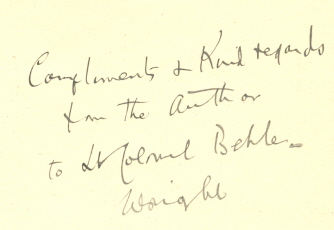 Compliments & Kind regards
from the Author
to Lt Colonel
Wright